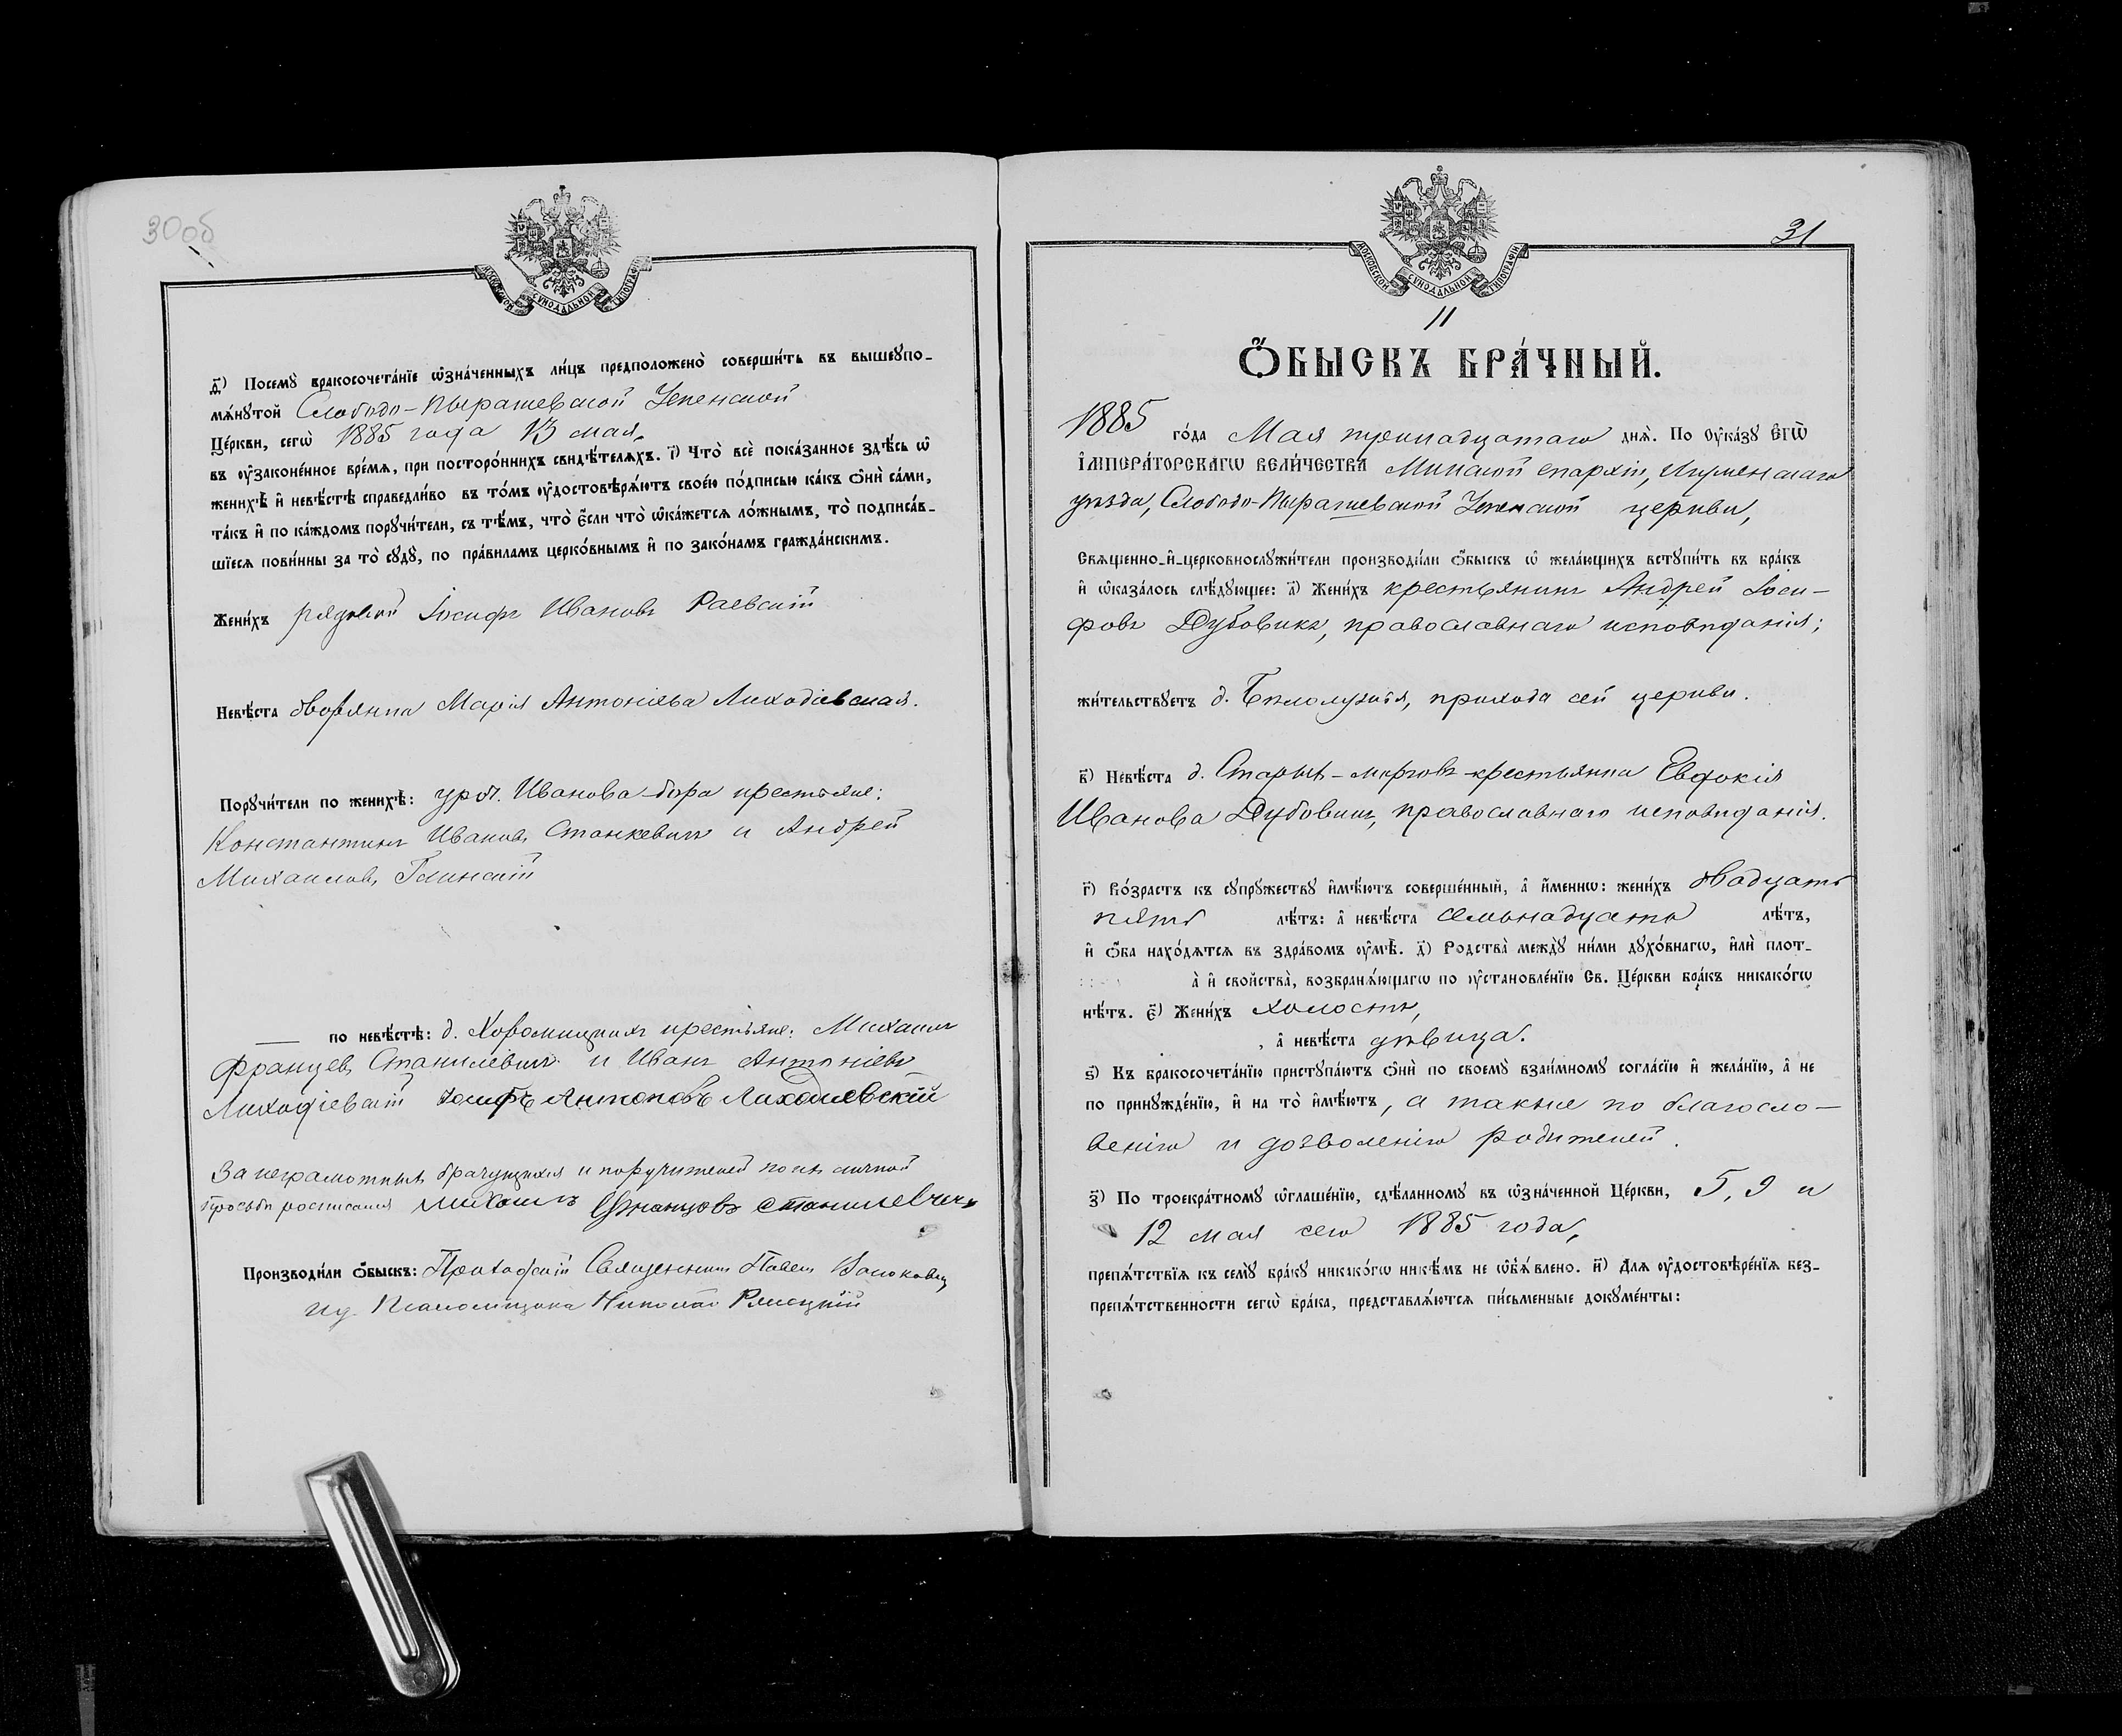 30об
МОСКОВСКОЙ СѴНОДАЛЬНОЙ ТИПОГРАФІИ
д҃) Посемꙋ̀ бракосочета́нїе ѡ҆зна́ченныхъ ли́цъ предположено̀ соверши́ть въ вышеꙋпо-
мѧ́нꙋтой Слободо-Пырашевской Успенской
Це́ркви, сегѡ̀ 1885 года 13 мая,
въ ᲂу҆законе́нное вре́мѧ, при посторо́ннихъ свидѣ́телѧхъ. і҃) Что̀ всѐ пока́занное здѣ́сь ѡ҆
женихѣ̀ и҆ невѣ́стѣ справедли́во въ то́мъ ᲂу҆достовѣрѧ́ютъ свое́ю по́дписью ка́къ ѻ҆нѝ са́ми,
та́къ и҆ по ка́ждомъ порꙋчи́тели, съ тѣ́мъ, что̀ є҆́сли что̀ ѡ҆ка́жетсѧ ло́жнымъ, то̀ подписа́в-
шїесѧ пови́нны за то̀ сꙋдꙋ̀, по пра́виламъ церко́внымъ и҆ по зако́намъ гражда́нскимъ.
Жени́хъ рядовой Іосифъ Ивановъ Раевскій
Невѣ́ста дворянка Марія Антоніева Лиходіевская.
Порꙋчи́тели по женихѣ̀: уроч. Иванова-бора крестьяне:
Константинъ Ивановъ Станкевичъ и Андрей
Михаиловъ Глинскій
по невѣ́стѣ: д. крестьяне: Михаилъ
Францевъ Станилевичъ и Иванъ Антоніевъ
Лиходіевскій Іосифъ Антоновъ Лиходиевский
За неграмотныхъ брачущихся и поручителей по ихъ личной
просьбѣ росписался Михаилъ Францовъ Станилевичъ
Производи́ли ѻ҆́быскъ: Приходскій Священникъ Павелъ
Псаломщика Николай
31
МОСКОВСКОЙ СѴНОДАЛЬНОЙ ТИПОГРАФІИ
11
Ѻ҆́БЫСКЪ БРА́ЧНЫЙ.
1885 го́да Мая тринадцатаго днѧ̀. По ᲂу҆ка́зꙋ Є҆ГѠ̀
І҆МПЕРА́ТОРСКАГѠ ВЕЛИ́ЧЕСТВА Минской епархіи, Игуменскаго
уѣзда, Слободо-Пырашевской Успенской церкви,
Свѧщенно-и҆-церковнослꙋжи́тели производи́ли ѻ҆́быскъ ѡ҆ жела́ющихъ встꙋпи́ть въ бра́къ
и҆ ѡ҆каза́лось слѣ́дꙋющее: а҃) Жени́хъ крестьянинъ Андрей Іоси-
фовъ Дубовикъ, православнаго исповѣданія;
жи́тельствꙋетъ д. прихода сей церкви.
в҃) Невѣ́ста д. крестьянка Евдокія
Иванова Дубовикъ, православнаго исповѣданія.
г҃) Во́зрастъ къ сꙋпрꙋ́жествꙋ и҆мѣ́ютъ соверше́нный, а҆ и҆́меннѡ: жени́хъ двадцать
пять лѣ́тъ: а҆ невѣ́ста семьнадцать лѣ́тъ,
и҆ ѻ҆́ба нахо́дѧтсѧ въ здра́вомъ ᲂу҆мѣ̀. д҃) Родства̀ междꙋ̀ ни́ми дꙋхо́внагѡ, и҆лѝ плот-
а҆̀ и҆ свойства̀, возбранѧ́ющагѡ по ᲂу҆становле́нїю Св. Це́ркви бра́къ никако́гѡ
нѣ́тъ. є҃) Жени́хъ холостъ,
, а҆ невѣ́ста дѣвица.
ѕ҃) Къ бракосочета́нїю пристꙋпа́ютъ ѻ҆нѝ по своемꙋ̀ взаи́мномꙋ согла́сїю и҆ жела́нїю, а҆ не
по принꙋжде́нїю, и҆ на то̀ и҆мѣ́ютъ, а также по благосло-
венію и дозволенію родителей.
з҃) По троекра́тномꙋ ѡ҆глаше́нїю, сдѣ́ланномꙋ въ ѡ҆зна́ченной Це́ркви, 5, 9 и
12 мая сего 1885 года,
препѧ́тствїѧ къ семꙋ̀ бра́кꙋ никако́гѡ никѣ́мъ не ѡ҆б̾ѧ́влено. и҃) Длѧ ᲂу҆достовѣре́нїѧ без-
препѧ́тственности сегѡ̀ бра́ка, представлѧ́ютсѧ пи́сьменные докꙋме́нты: